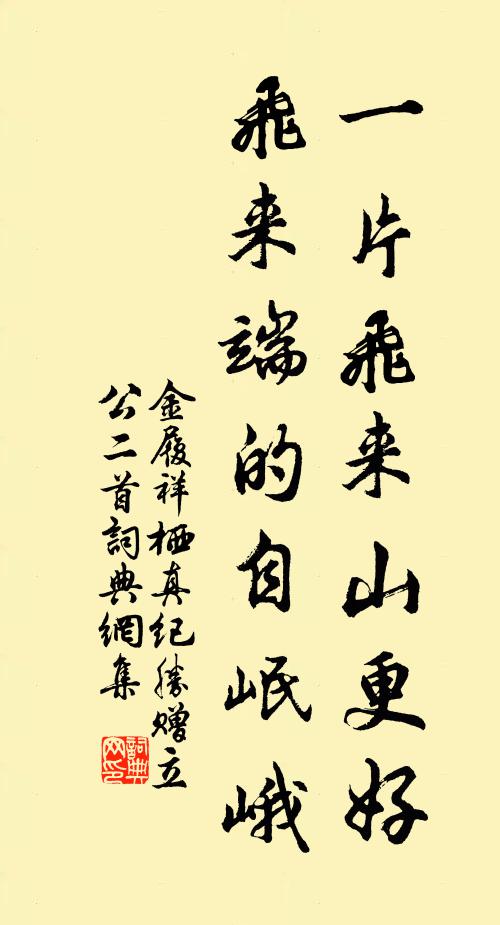 一片飛来山更好
飛来端的自岷峨
金履祥栖真紀勝赠立
公二首詞典網集
詞典
网印